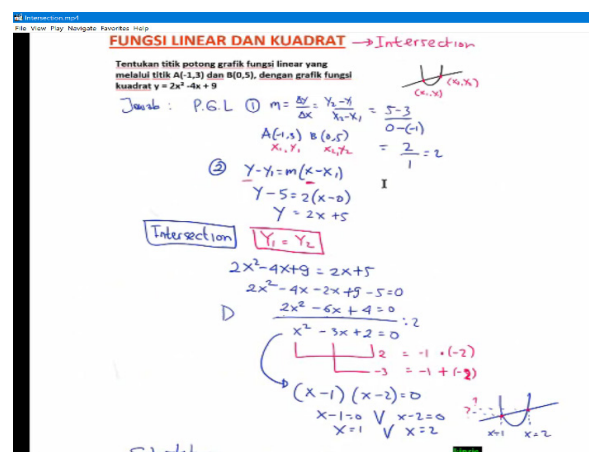 Intersection.mp4
File View Play Navigate Favorites Help
FUNGSI LINEAR DAN KUADRAT → Intersection
Tentukan titik potong grafik fungsi linear yang
melalui titik A(-1,3) dan B(0,5), dengan grafik fungsi
kuadrat y = 2x² -4x + 9
(x₁,y₁) (x₂,y₂)
Jawab : P.G.L ① m = Δy/Δx = y₂-y₁/x₂-x₁ = 5-3/0-(-1)
A(-1,3) B(0,5) = 2/1 = 2
x₁,y₁ x₂,y₂
② y-y₁=m(x-x₁)
y-5=2(x-0)
y = 2x+5
Intersection Y₁ = Y₂
2x²-4x+9 = 2x+5
2x²-4x-2x+9-5=0
D 2x²-6x+4=0 :2
x²-3x+2=0
2 = -1 ·(-2)
-3 = -1 + (-2)
(x-1)(x-2)=0
x-1=0 V x-2=0
x=1 V x=2
? ?
x=1 x=2